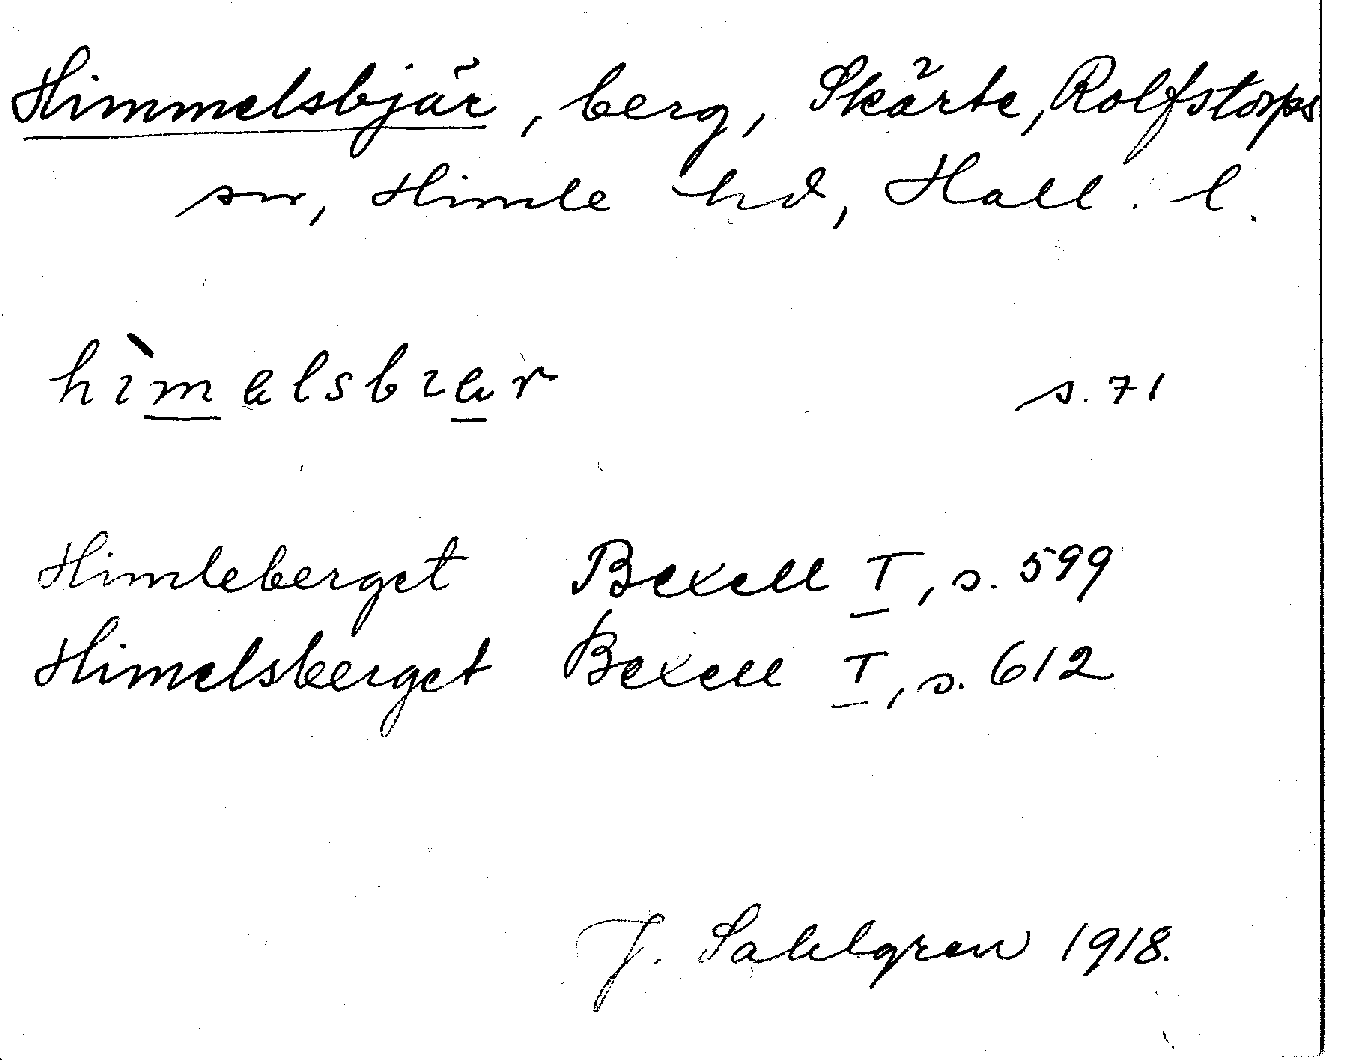 Himmelsbjär, berg, Skärte, Rolfstorps
sn, Himle hd, Hall. l.
hìmalsbıar s. 71
Himleberget Bexell I, s. 599
Himelsberget Bexell I, s. 612
J. Sahlgren 1918.